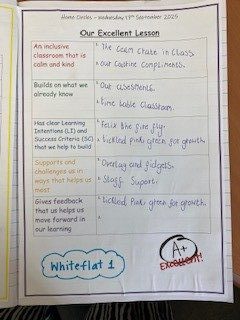 Home Circles - Wednesday 17th September 2025
Our Excellent Lesson
An inclusive
classroom that is
calm and kind
The Calm Chair in Class.
our Caotine Compliments.
Builds on what we
already know
Our assesments.
time table Classroom.
Has clear Learning
Intentions (LI) and
Success Criteria (SC)
that we help to build
Felix the fire fly.
tickled Pink, green for growth.
Supports and
challenges us in
ways that helps us
most
Overlay and fidgets.
Staff Support.
Gives feedback
that us helps us
move forward in
our learning
tickled Pink, green for growth.
A+
Excellent!
Whiteflat 1